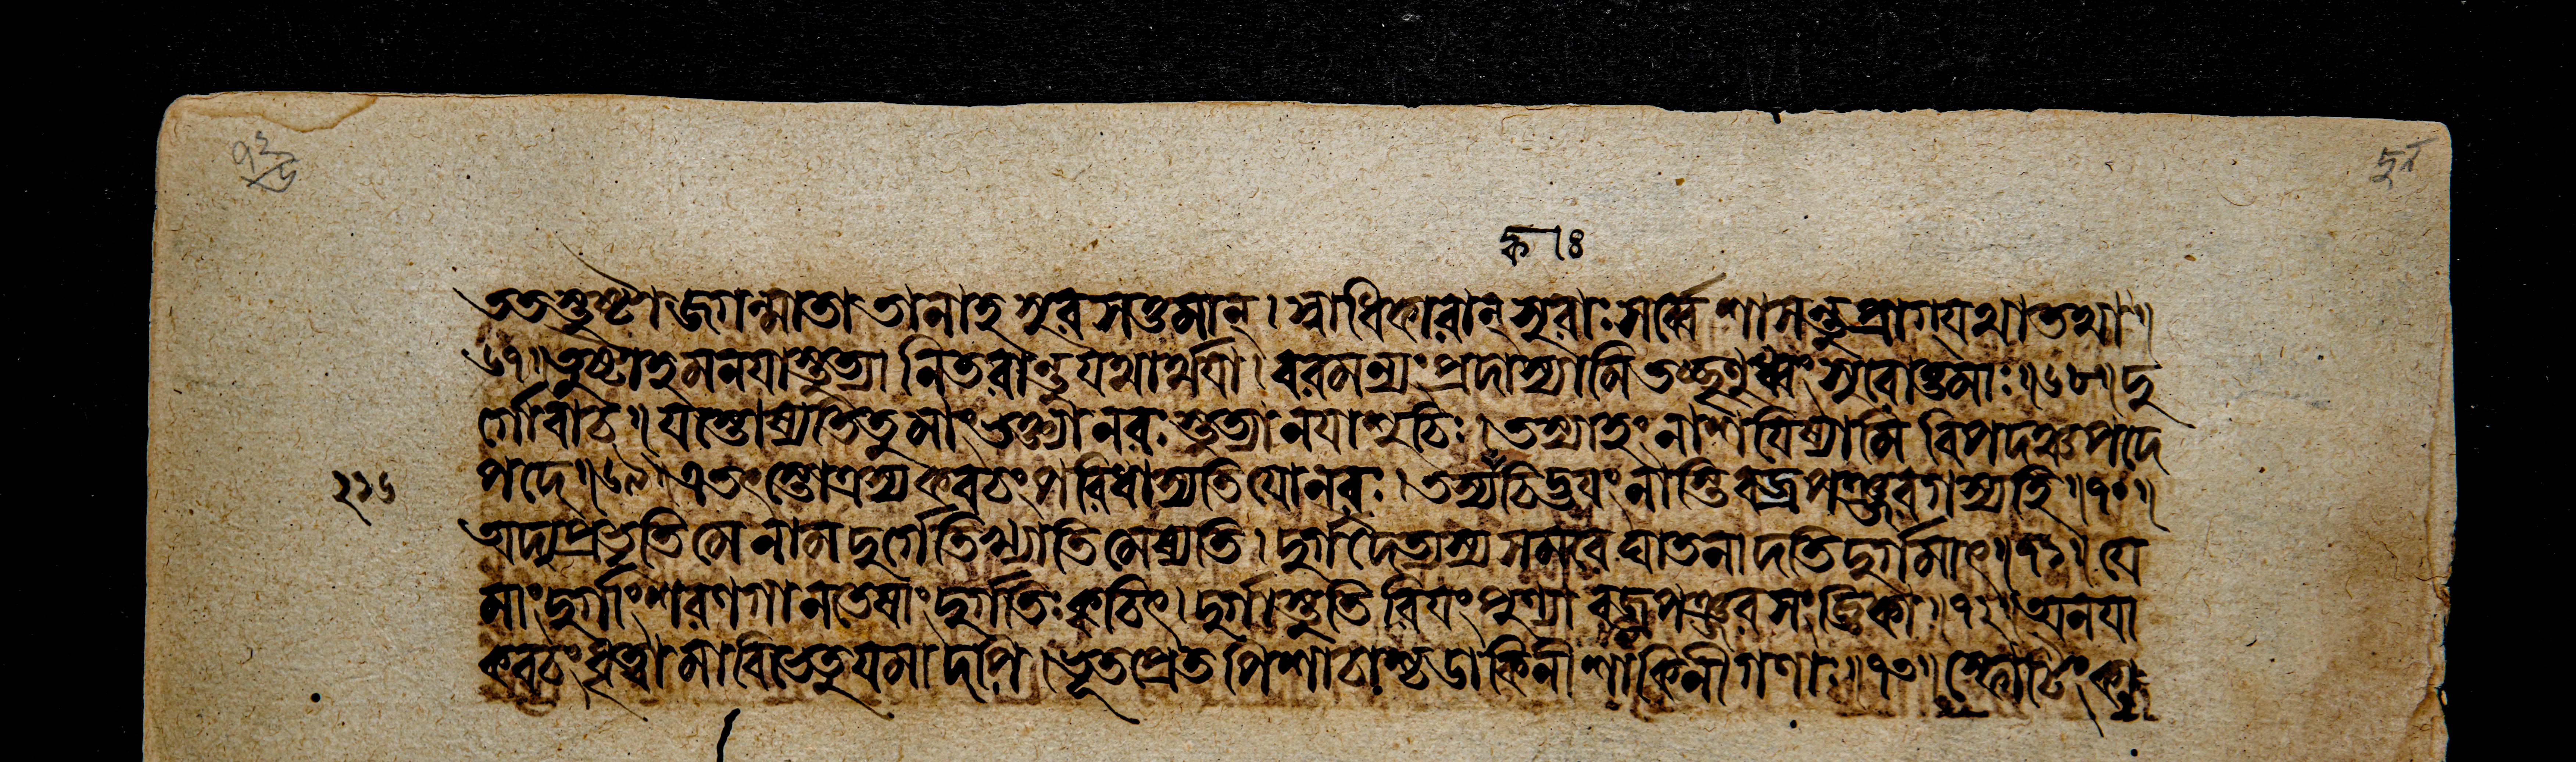 ক ।৪
ততস্তুষ্টা জগন্মাতা তানাহ সুরসত্তমান্ । স্বাধিকারান্ সুরাঃ সর্ব্বে শাসন্তু প্রাগ্যথাতথা ॥
৬৭ ॥ তুষ্টাহমনযাস্তুত্যা নিতরান্তু যথার্থযা । বরমন্যং প্রদাস্যামি তচ্ছৃণুধ্বং সুরোত্তমাঃ ॥ ৬৮ ॥ দু
র্গোবাচ ॥ যস্তোষ্যতিতু মাং ভক্ত্যা নরঃ স্তুত্যানযা শুচিঃ । তস্যাহং নাশযিষ্যামি বিপদঞ্চ পদে
পদে ॥ ৬৯ ॥ এতৎস্তোত্রস্য কবচং পরিধাস্যতি যোনরঃ । তস্য ক্বচিদ্ভযং নাস্তি বজ্রপঞ্জরগস্যহি ॥ ৭০ ॥
অদ্যপ্রভৃতি মে নাম দুর্গেতিখ্যাতিমেষ্যতি । দুর্গদৈত্যস্য সমরে ঘাতনাদতিদুর্গমাৎ ॥ ৭১ ॥ যে
মাং দুর্গাং শরণগা নতেষাং দুর্গতিঃ ক্বচিৎ । দুর্গাস্তুতিরিযং পুণ্যা বজ্রপঞ্জরসংজ্ঞিকা ॥ ৭২ ॥ অনযা
কবচং ধৃত্বা মাবিভেতু যমাদপি । ভূতপ্রেতপিশাচাশ্চ ডাকিনীশাকিনীগণাঃ ॥ ৭৩ ॥